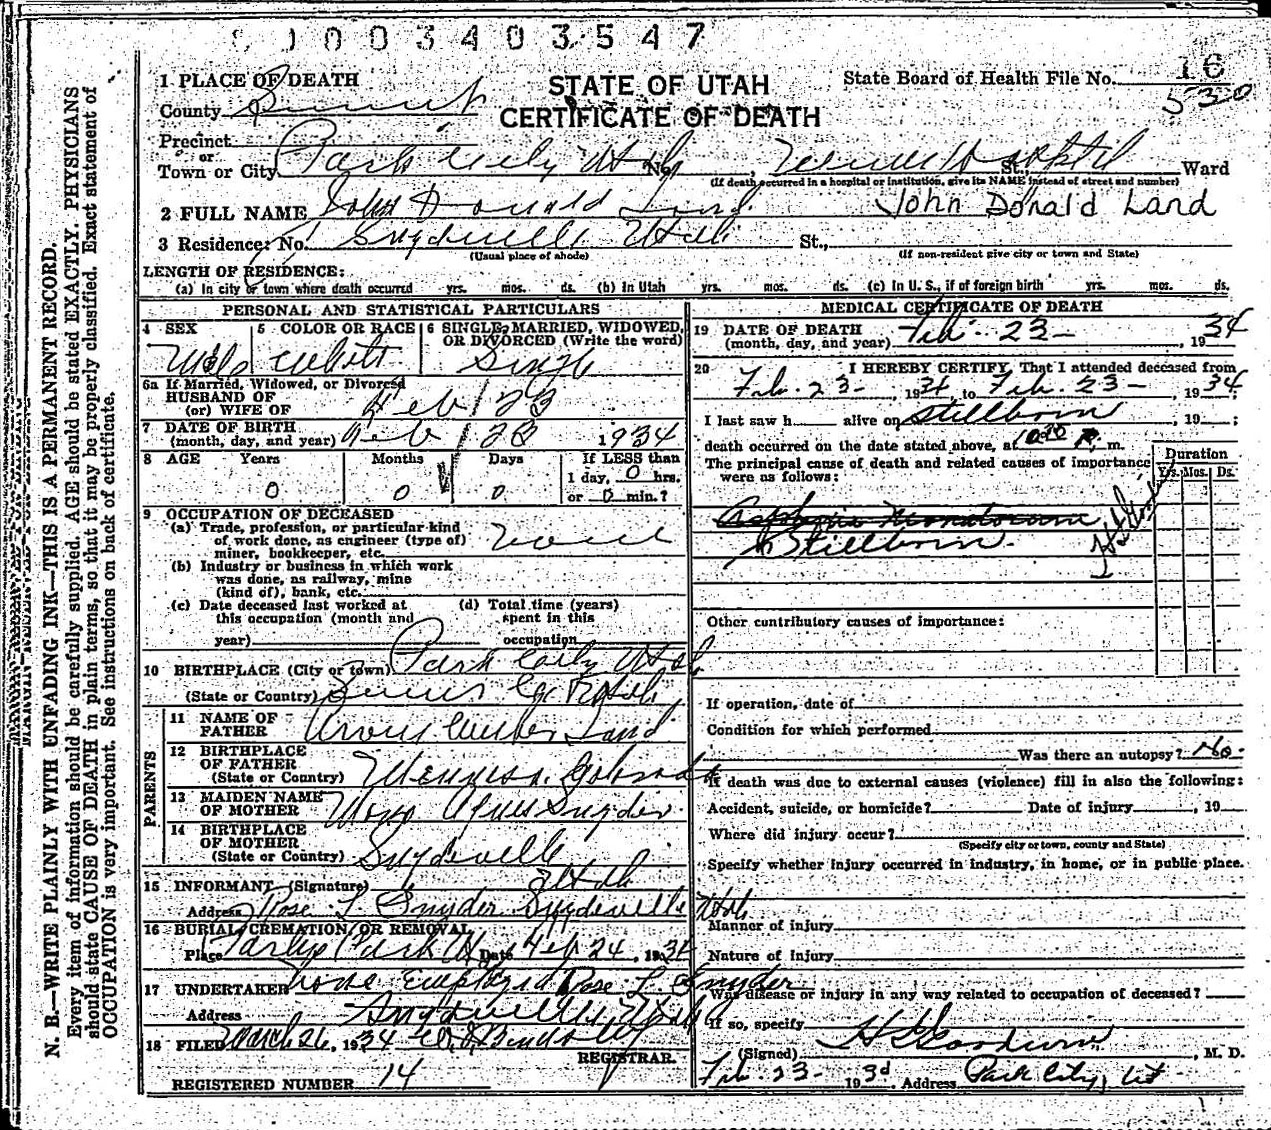 0 1 0 0 3 4 0 3 5 4 7
1 PLACE OF DEATH
STATE OF UTAH
CERTIFICATE OF DEATH
State Board of Health File No. 16
530
County Summit
Precinct
or
Town or City Park City Utah No. St., Ward
(If death occurred in a hospital or institution, give its NAME instead of street and number)
2 FULL NAME John Donald Land John Donald Land
3 Residence: No. Snyderville Utah St.,
(Usual place of abode) (If non-resident give city or town and State)
LENGTH OF RESIDENCE:
(a) In city or town where death occurred yrs. mos. ds. (b) In Utah yrs. mos. ds. (c) In U. S., if of foreign birth yrs. mos. ds.
PERSONAL AND STATISTICAL PARTICULARS
4 SEX Male
5 COLOR OR RACE White
6 SINGLE, MARRIED, WIDOWED, OR DIVORCED (Write the word) Single
6a If Married, Widowed, or Divorced
HUSBAND OF
(or) WIFE OF Feb 23
7 DATE OF BIRTH
(month, day, and year) Feb 23 1934
8 AGE Years Months Days If LESS than
1 day, 0 hrs.
0 0 0 or 0 min.?
9 OCCUPATION OF DECEASED
(a) Trade, profession, or particular kind
of work done, as engineer (type of)
miner, bookkeeper, etc.
(b) Industry or business in which work
was done, as railway, mine
(kind of), bank, etc.
(c) Date deceased last worked at
this occupation (month and
year)
(d) Total time (years)
spent in this
occupation
10 BIRTHPLACE (City or town) Park City Utah
(State or Country) Summit Co. Utah
PARENTS
11 NAME OF
FATHER Land
12 BIRTHPLACE
OF FATHER
(State or Country) Colorado
13 MAIDEN NAME
OF MOTHER Agnes Snyder
14 BIRTHPLACE
OF MOTHER
(State or Country) Snyderville
Utah
15 INFORMANT (Signature)
Address Rose L Snyder Snyderville Utah
16 BURIAL, CREMATION, OR REMOVAL
Place Parleys Park U Date Feb 24, 1934
17 UNDERTAKER None Employed Rose L Snyder
Address Snyderville, Utah
18 FILED March 26, 1934
REGISTRAR.
REGISTERED NUMBER 14
MEDICAL CERTIFICATE OF DEATH
19 DATE OF DEATH
(month, day, and year) Feb. 23 - , 1934
20 I HEREBY CERTIFY, That I attended deceased from
Feb. 23 - 1934 to Feb. 23 - , 1934;
I last saw h alive on Stillborn , 19 ;
death occurred on the date stated above, at P. m.
The principal cause of death and related causes of importance
were as follows:
Duration
Yrs. Mos. Ds.
Stillborn.
Other contributory causes of importance:
If operation, date of
Condition for which performed
Was there an autopsy? No.
If death was due to external causes (violence) fill in also the following:
Accident, suicide, or homicide? Date of injury , 19
Where did injury occur?
(Specify city or town, county and State)
Specify whether injury occurred in industry, in home, or in public place.
Manner of injury
Nature of injury
Was disease or injury in any way related to occupation of deceased?
If so, specify
(Signed) , M. D.
Feb. 23 - 193 Address Park City, Ut -
N. B.—WRITE PLAINLY WITH UNFADING INK—THIS IS A PERMANENT RECORD.
Every item of information should be carefully supplied. AGE should be stated EXACTLY. PHYSICIANS
should state CAUSE OF DEATH in plain terms, so that it may be properly classified. Exact statement of
OCCUPATION is very important. See instructions on back of certificate.